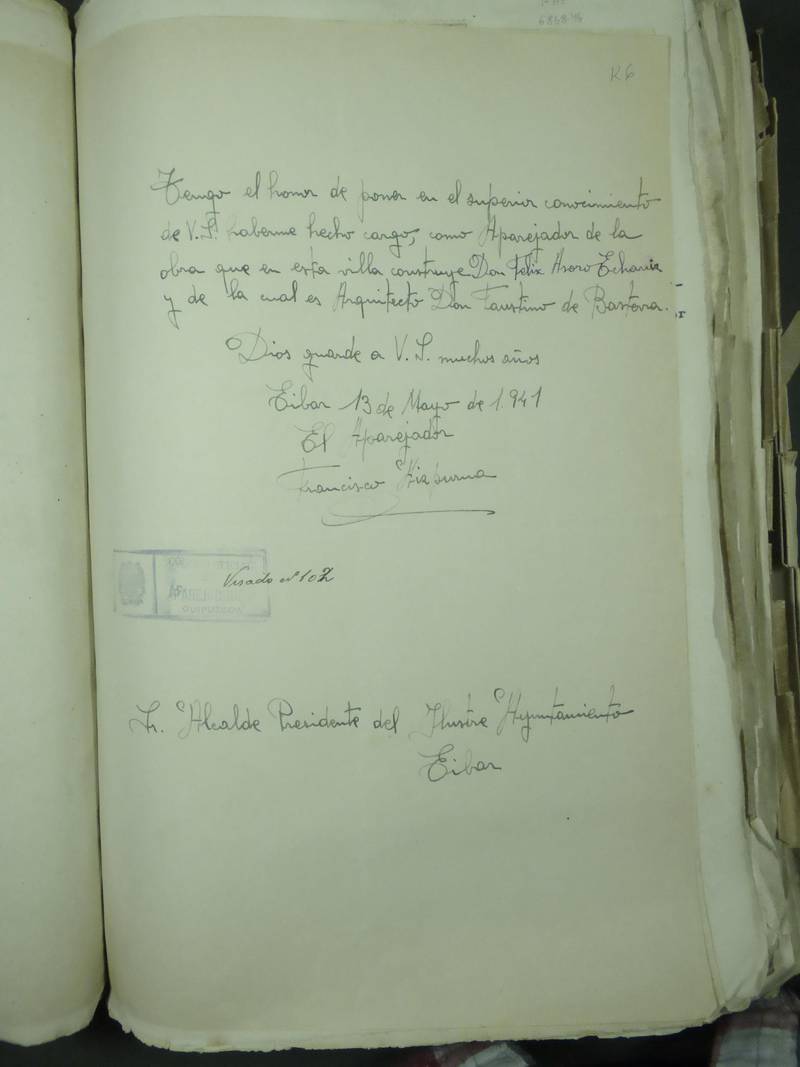 K6
Tengo el honor de poner en el superior conocimiento
de V.S. haberme hecho cargo, como Aparejador de la
obra que en esta villa construye Don Felix Asoro Echave
y de la cual es Arquitecto Don Faustino de Basterra.
Dios guarde a V.S. muchos años
Eibar 13 de Mayo de 1.941
El Aparejador
Francisco Aizpurua
Visado nº 102
APAREJADORES
GUIPUZCOA
Sr. Alcalde Presidente del Ilustre Ayuntamiento
Eibar